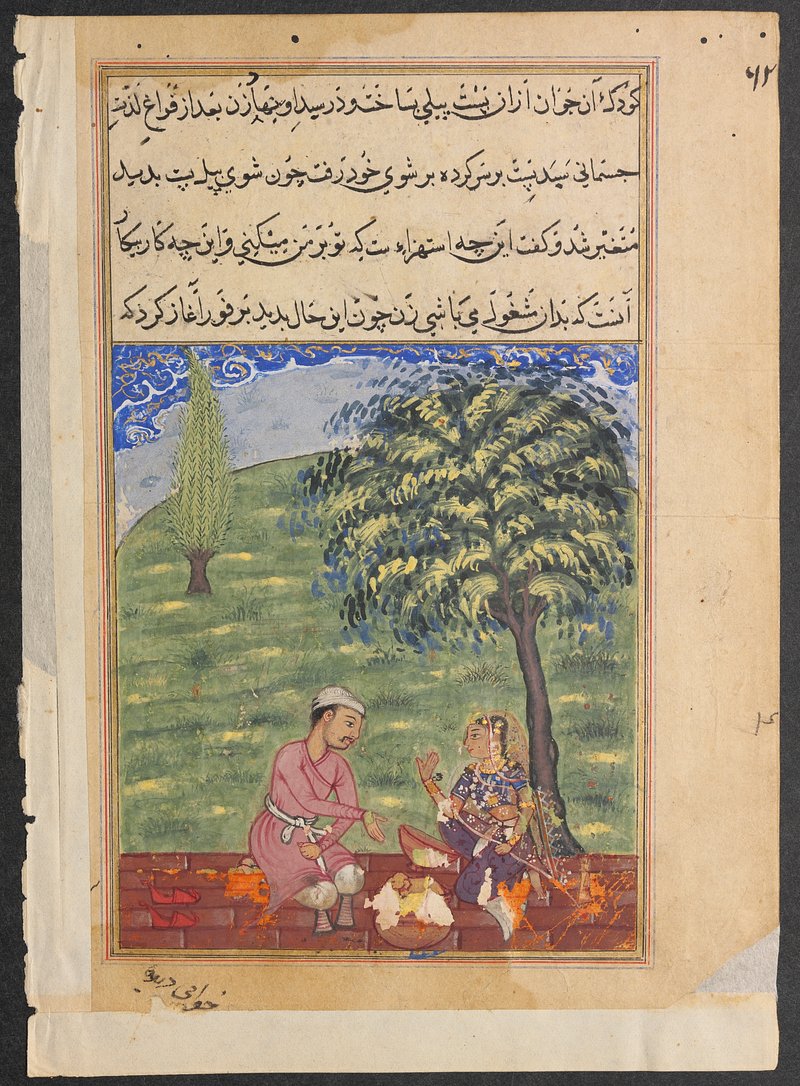 ۶۲
کودک آن جوان ازان پست پیلی بساخته و در سبد او بنهاد زن بعد از فراغ لذت
جسمانی سبد پست بر سر کرده بر شوی خود رفت چون شوی پیل پست بدید
متغیر شد و گفت این چه استهزاء ست که تو بر من میکنی و این چه کار بیکار
آنست که بدان مشغول می باشی زن چون این حال بدید بر فور آغاز کرد که